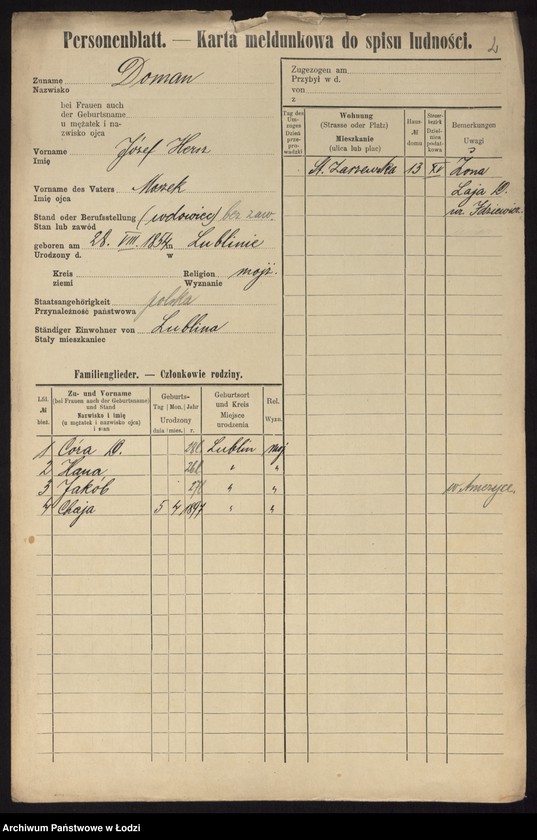 Personenblatt. — Karta meldunkowa do spisu ludności. 2
Zuname
Nazwisko Doman
bei Frauen auch
der Geburtsname
u mężatek i na-
zwisko ojca
Vorname Józef Hersz
Imię
Vorname des Vaters Moszek
Imię ojca
Stand oder Berufsstellung (wdowiec) bez zaw.
Stan lub zawód
geboren am 28. VIII. 1854 in Lublinie
Urodzony d. w
Kreis Religion mojż.
ziemi Wyznanie
Staatsangehörigkeit polska
Przynależność państwowa
Ständiger Einwohner von Lublina
Stały mieszkaniec
Zugezogen am
Przybył w d.
von
z
Tag des Um-
zuges
Dzień
prze-
prowadzki
Wohnung
(Strasse oder Platz)
Mieszkanie
(ulica lub plac)
Haus-
№
domu
Steuer-
bezirk
Dziel-
nica
podat-
kowa
Bemerkungen
Uwagi
St. Zarzewska 13 XV Żona
Łaja D.
ur. Idziewicz
Familienglieder. — Członkowie rodziny.
Lfd.
№
bież.
Zu- und Vorname
(bei Frauen auch der Geburtsname)
und Stand
Nazwisko i imię
(u mężatek i nazwisko ojca)
i stan
Geburts-
Tag Mon. Jahr
Urodzony
dnia mies. r.
Geburtsort
und Kreis
Miejsce
urodzenia
Rel.
Wyzn.
1 Córa D. 28l. Lublin moj
2 Hana 26l. " "
3 Jakób 27l " " w Ameryce
4 Chaja 5 4 1897 " "
Archiwum Państwowe w Łodzi